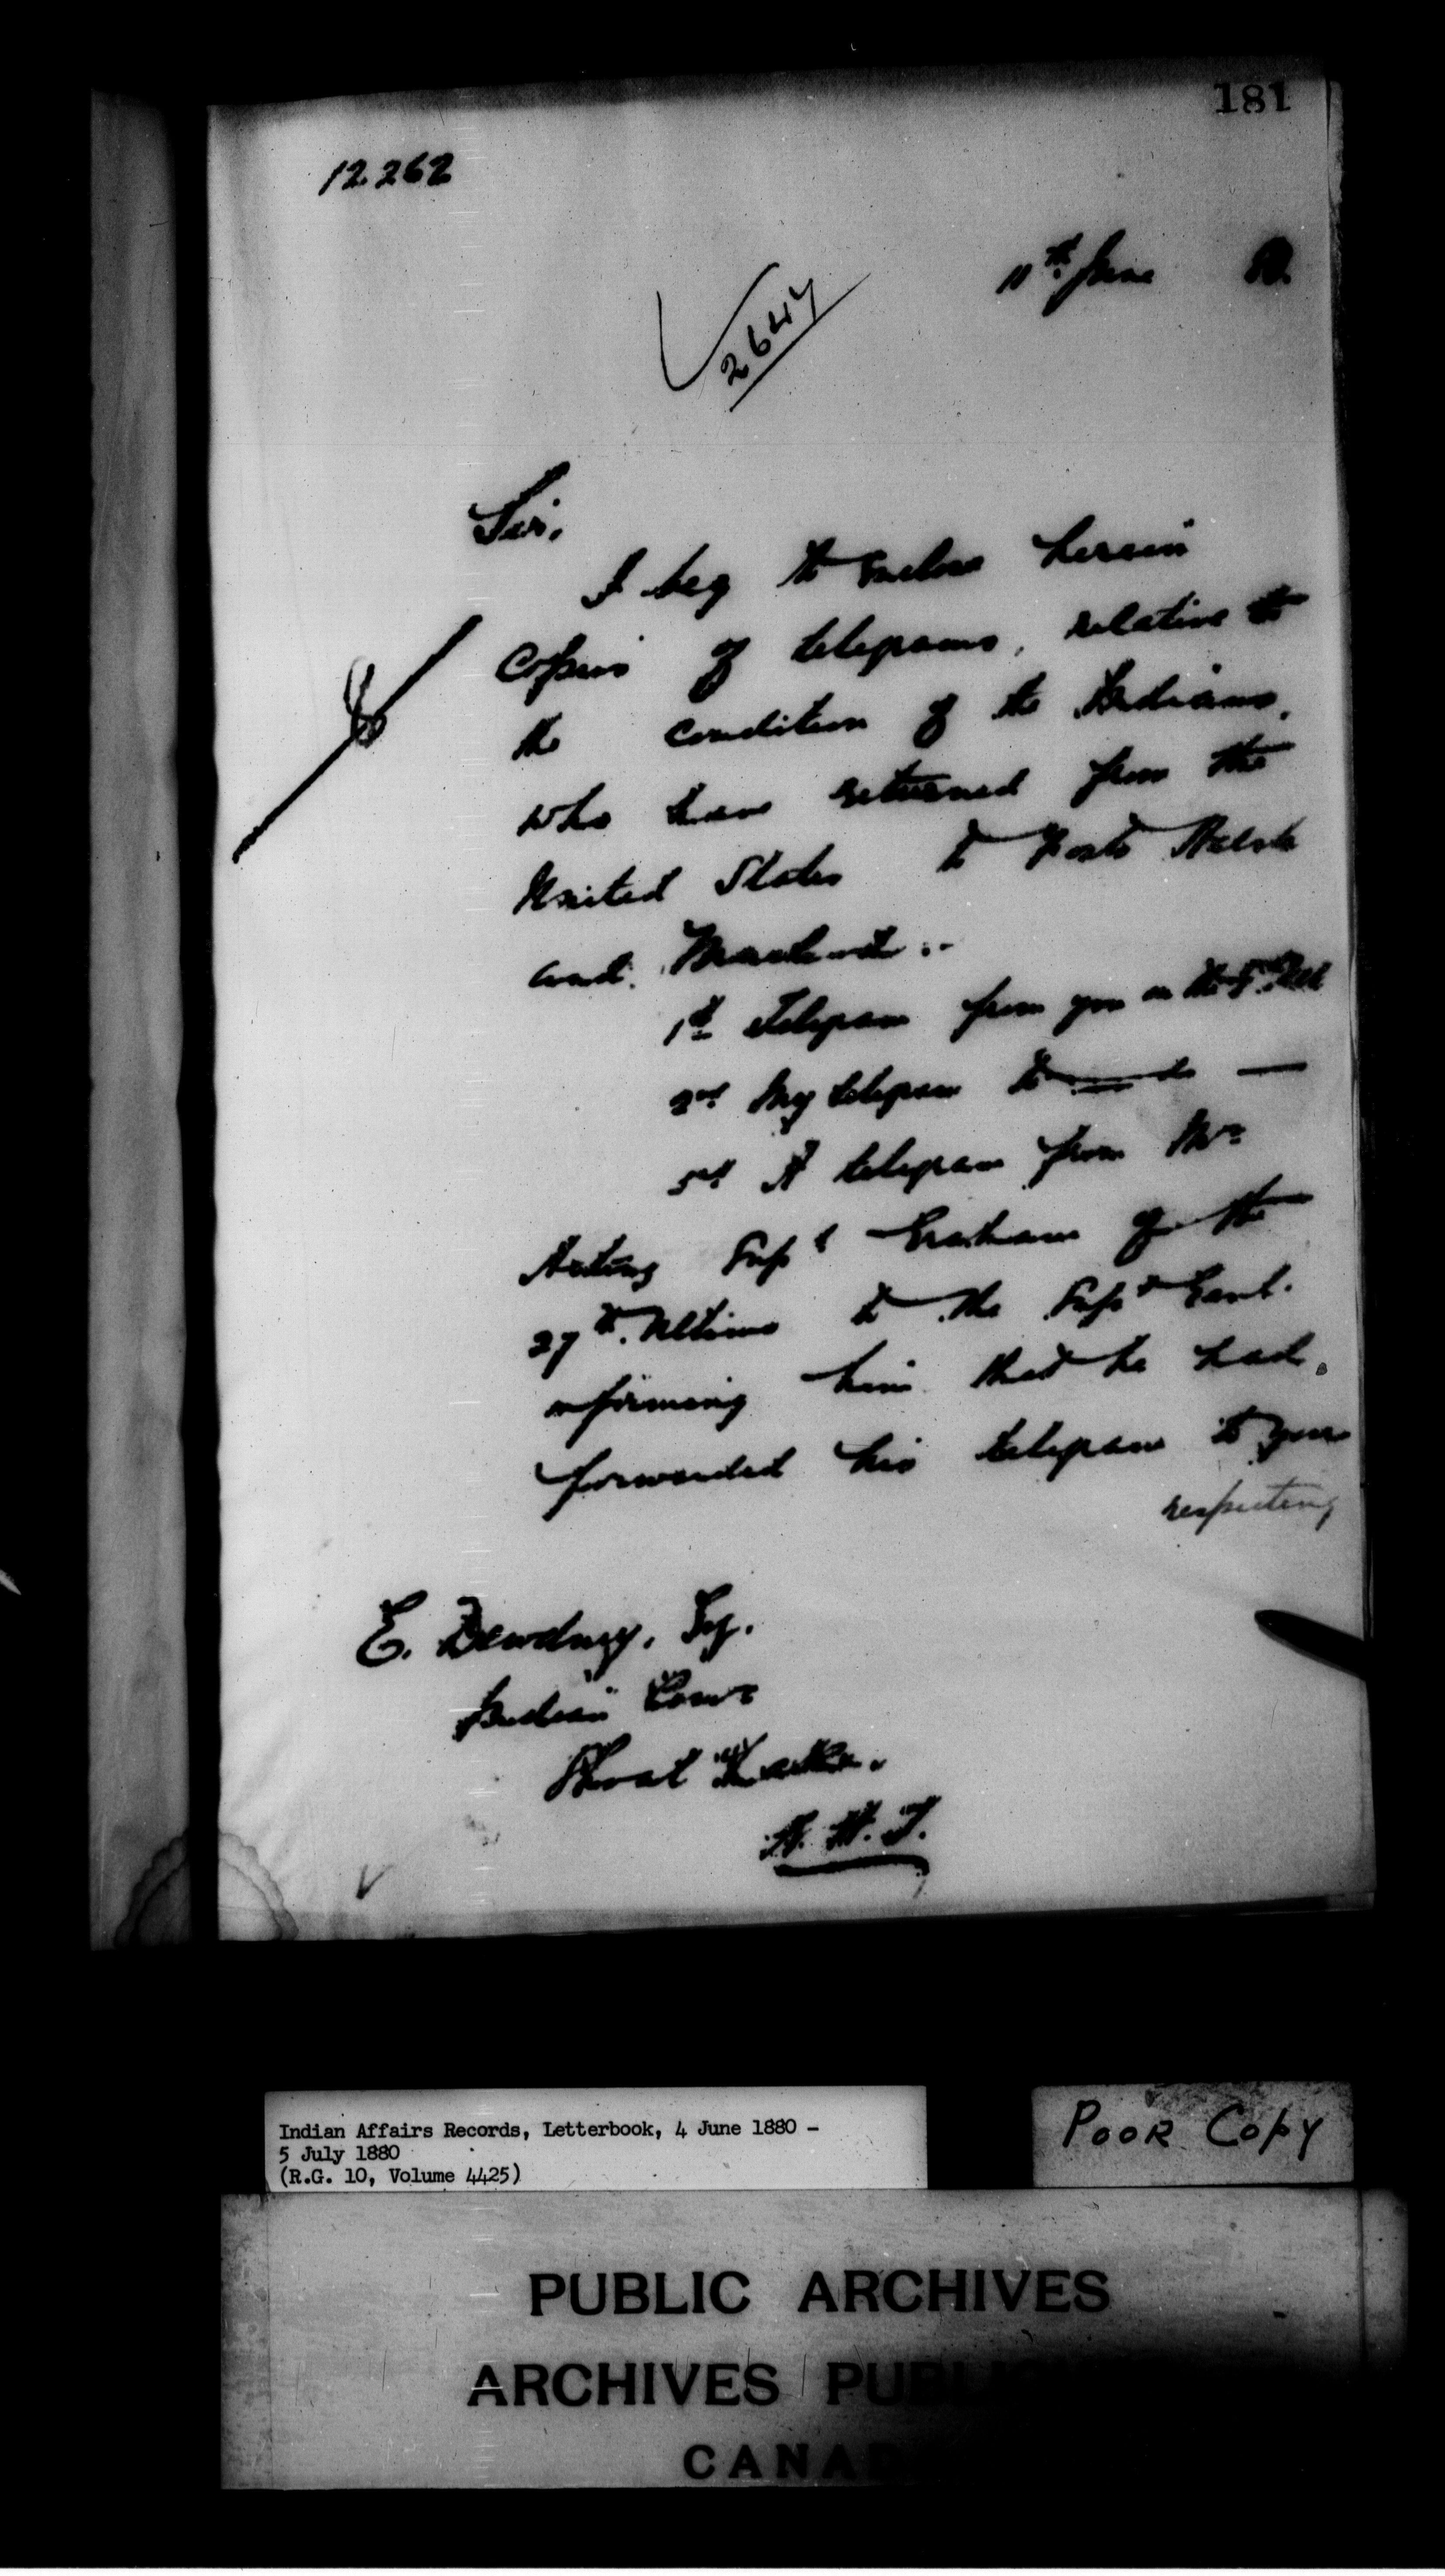 181
12262
11th June 80.
2647
Sir,
I beg to Enclose herein
Copies of telegrams, relative to
the condition of the Indians,
who have returned from the
United States to Forts Walsh
and Macleod :-
1st Telegram from you on the
2nd My telegram to
3rd A telegram from Mr
Acting Supt Graham of the
27th Ultimo to the Supt Genl.
informing him that he had
forwarded his telegram to you
respecting
E. Dewdney, Esq.
Indian Comr
N. W. T.
Indian Affairs Records, Letterbook, 4 June 1880 -
5 July 1880
(R.G. 10, Volume 4425)
POOR COPY
PUBLIC ARCHIVES
ARCHIVES PUBL
CANAD